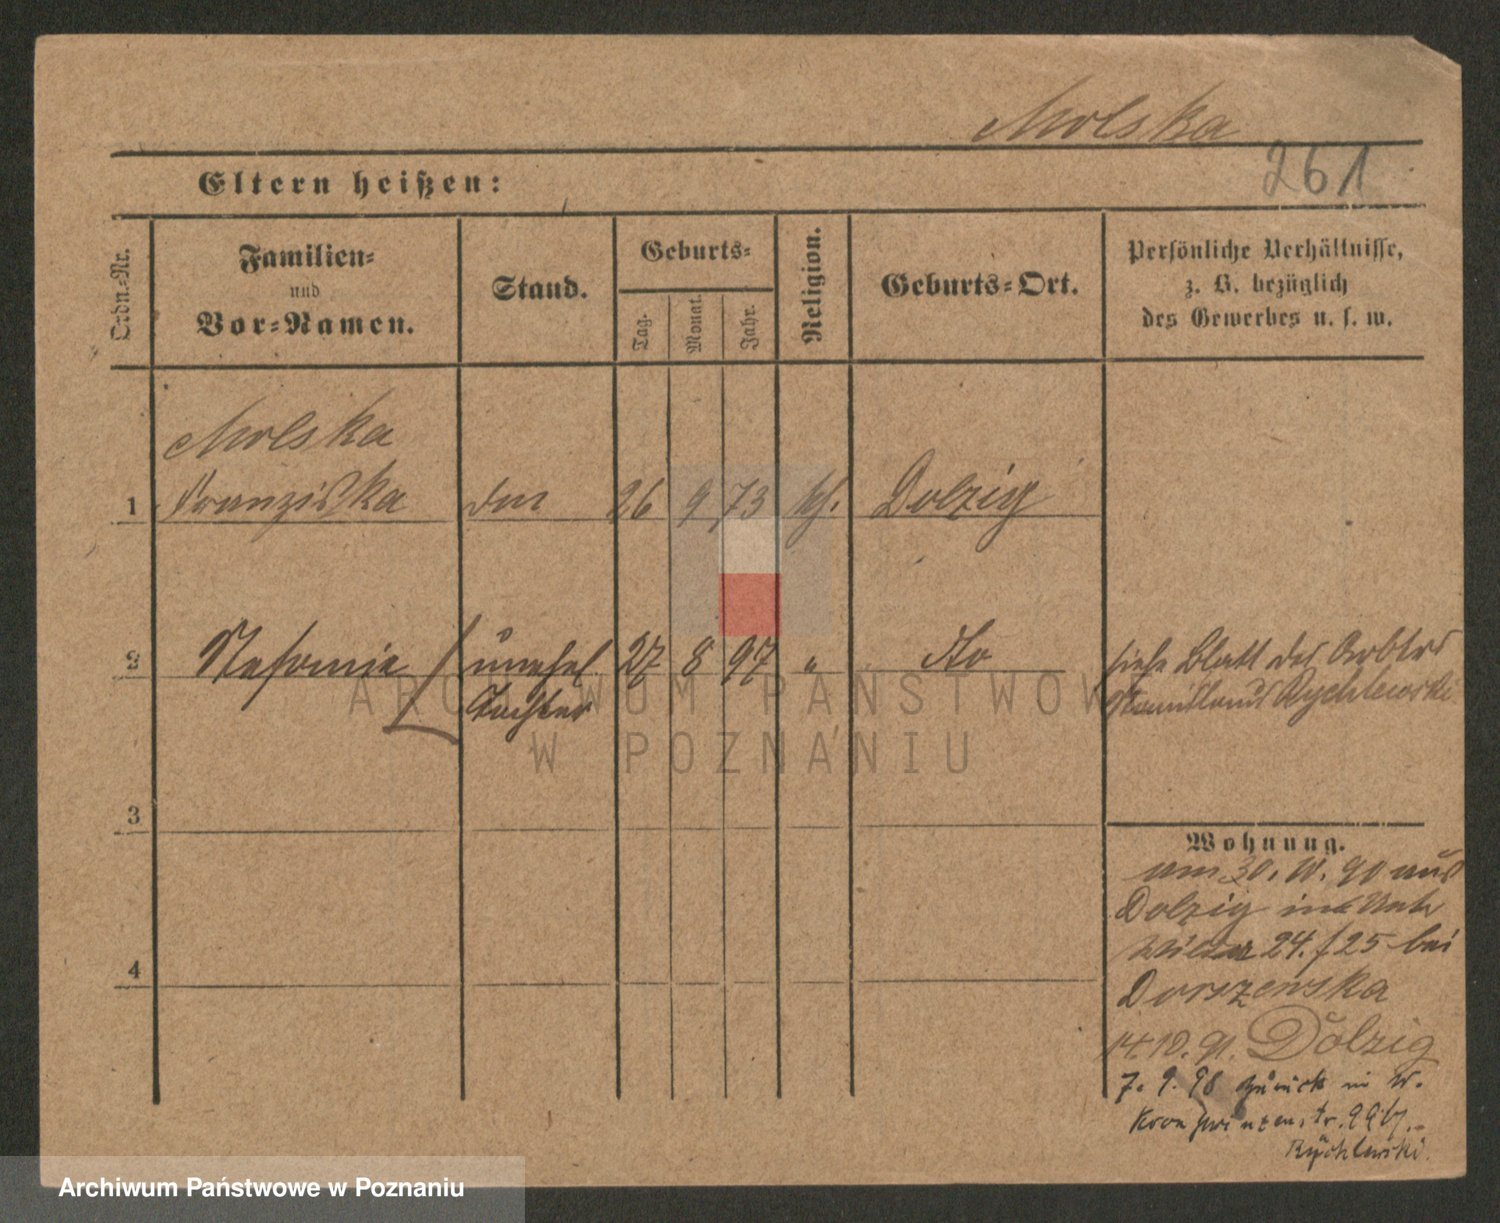 Molska
261
Eltern heißen:
Ordn.-Nr.
Familien-
und
Vor-Namen.
Stand.
Geburts-
Tag.
Monat.
Jahr.
Religion.
Geburts-Ort.
Persönliche Verhältnisse,
z. B. bezüglich
des Gewerbes u. s. w.
Molska
1 Franziska 26 9 73 kth. Dolzig
2 unehel. 27 8 97 " do siehe Blatt des
Tochter Rychlewski
3
Wohnung.
am 30. 10. 90 aus
Dolzig
24./25 bei
4
14 10. 91. Dolzig
7. 9. 98 zurück in W.
Kronprinzenstr. 99b.
Rychlewski.
ARCHIWUM PAŃSTWOWE
W POZNANIU
Archiwum Państwowe w Poznaniu